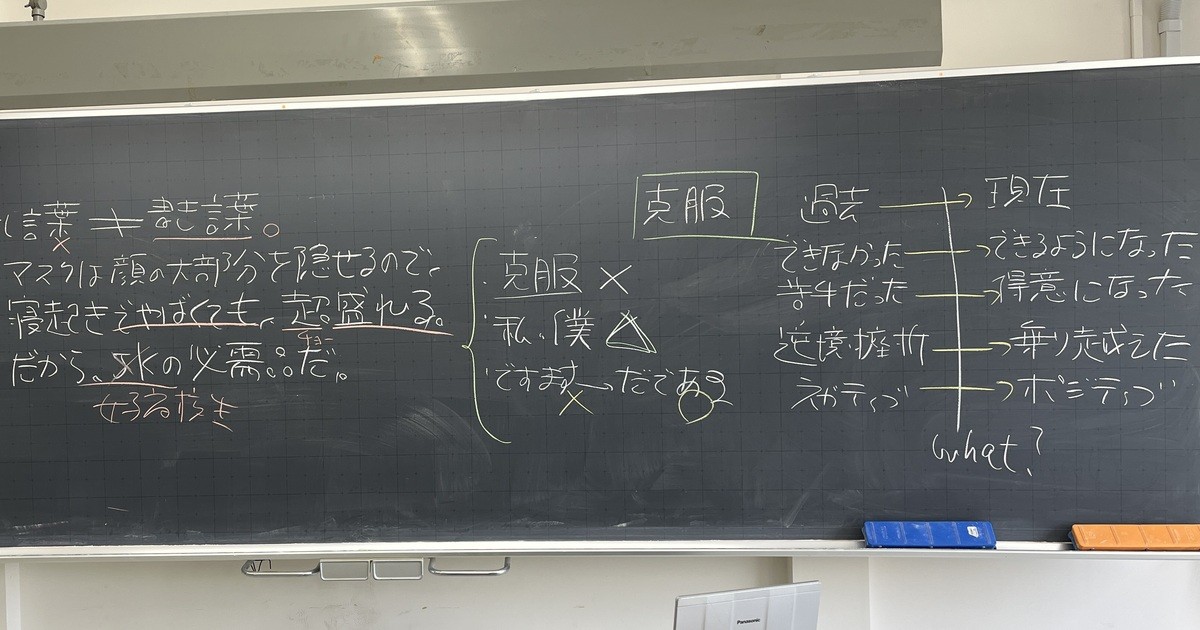 言葉 ≠ 書き言葉。
×
マスクは顔の大部分を隠せるので、
寝起きでやばくても、超盛れる。
チョー
だから、JKの必需品だ。
女子高校生
・克服 ×
・私、僕 △
・ですます→だである
× ○
克服
過去 → 現在
できなかった → できるようになった
苦手だった → 得意になった
逆境・挫折 → 乗り越えた
ネガティブ → ポジティブ
what?
Panasonic